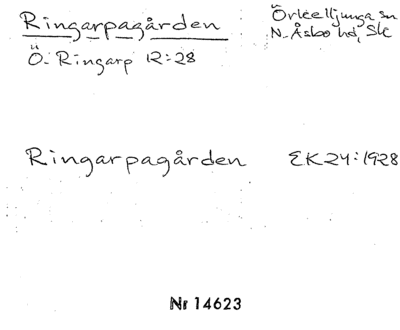 Ringarpagården
Örkelljunga sn
N. Åsbo hd, Sk
Ö. Ringarp 12:28
Ringarpagården EK24:1928
Nr 14623